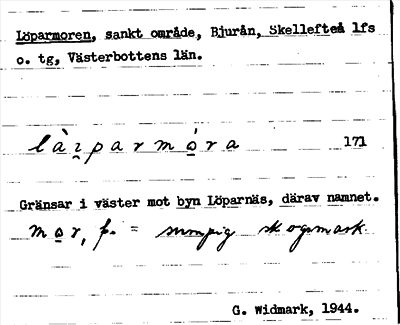 Löparmoren, sankt område, Bjurån, Skellefteå lfs
o. tg, Västerbottens län.
171
Gränsar i väster mot byn Löparnäs, därav namnet.
mo̲r, f. = sumpig skogsmark.
G. Widmark, 1944.